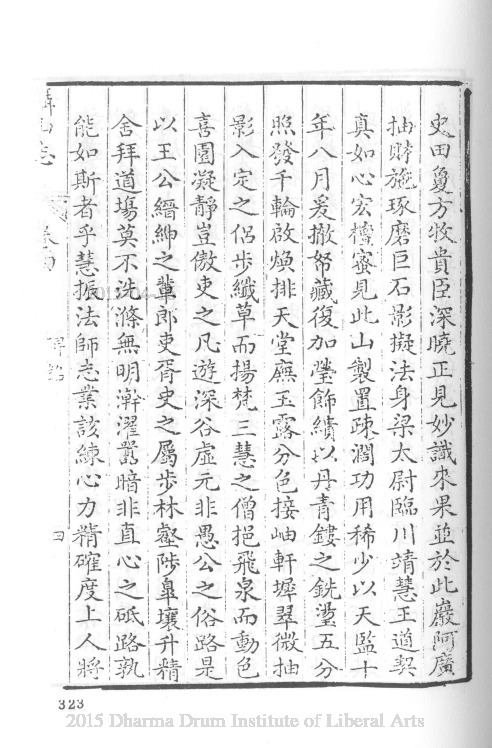 史田奐方收貴臣深曉正見妙識來果並於此巖阿廣
抽財施琢磨巨石影擬法身梁太尉臨川靖慧王道契
真如心宏檀蜜見此山製置疎濶功用稀少以天監十
年八月爰撤帑藏復加瑩飾繢以丹青鏤之銑鋈五分
照發千輪啟煥排天堂廡玉露分色接岫軒墀翠微抽
影入定之侶步纖草而揚梵三慧之僧挹飛泉而動色
喜園凝靜豈傲吏之凡遊深谷虛元非愚公之俗路是
以王公縉紳之輩郎吏胥史之屬步林壑陟臯壤升精
舍拜道塲莫不洗滌無明澣濯嚚暗非直心之砥路孰
能如斯者乎慧振法師志業該練心力精確度上人將
卷四
四
323
2015 Dharma Drum Institute of Liberal Arts